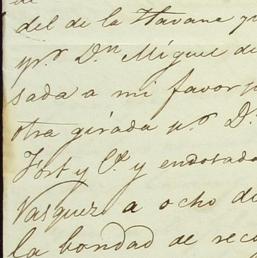 de
del de la Havane
pr. Dn. Miguel de
sada a mi favor p
otra girada pr. D.
Fort y Ca. y endosada
Vasquez a ocho de
la bondad de rec